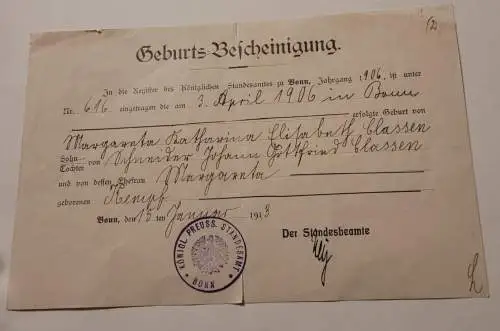 Geburts-Bescheinigung.
In die Register des Königlichen Standesamtes zu Bonn, Jahrgang 1906, ist unter
Nr. 616 eingetragen die am 3. April 1906 in Bonn
erfolgte Geburt von
Margareta Katharina Elisabeth Classen
Sohn
Tochter von Schneider Johann Gottfried Classen
und von dessen Ehefrau Margareta
geborenen Kempf
Bonn, den 15ten Januar 1913
Der Standesbeamte
KÖNIGL. PREUSS. STANDESAMT
BONN